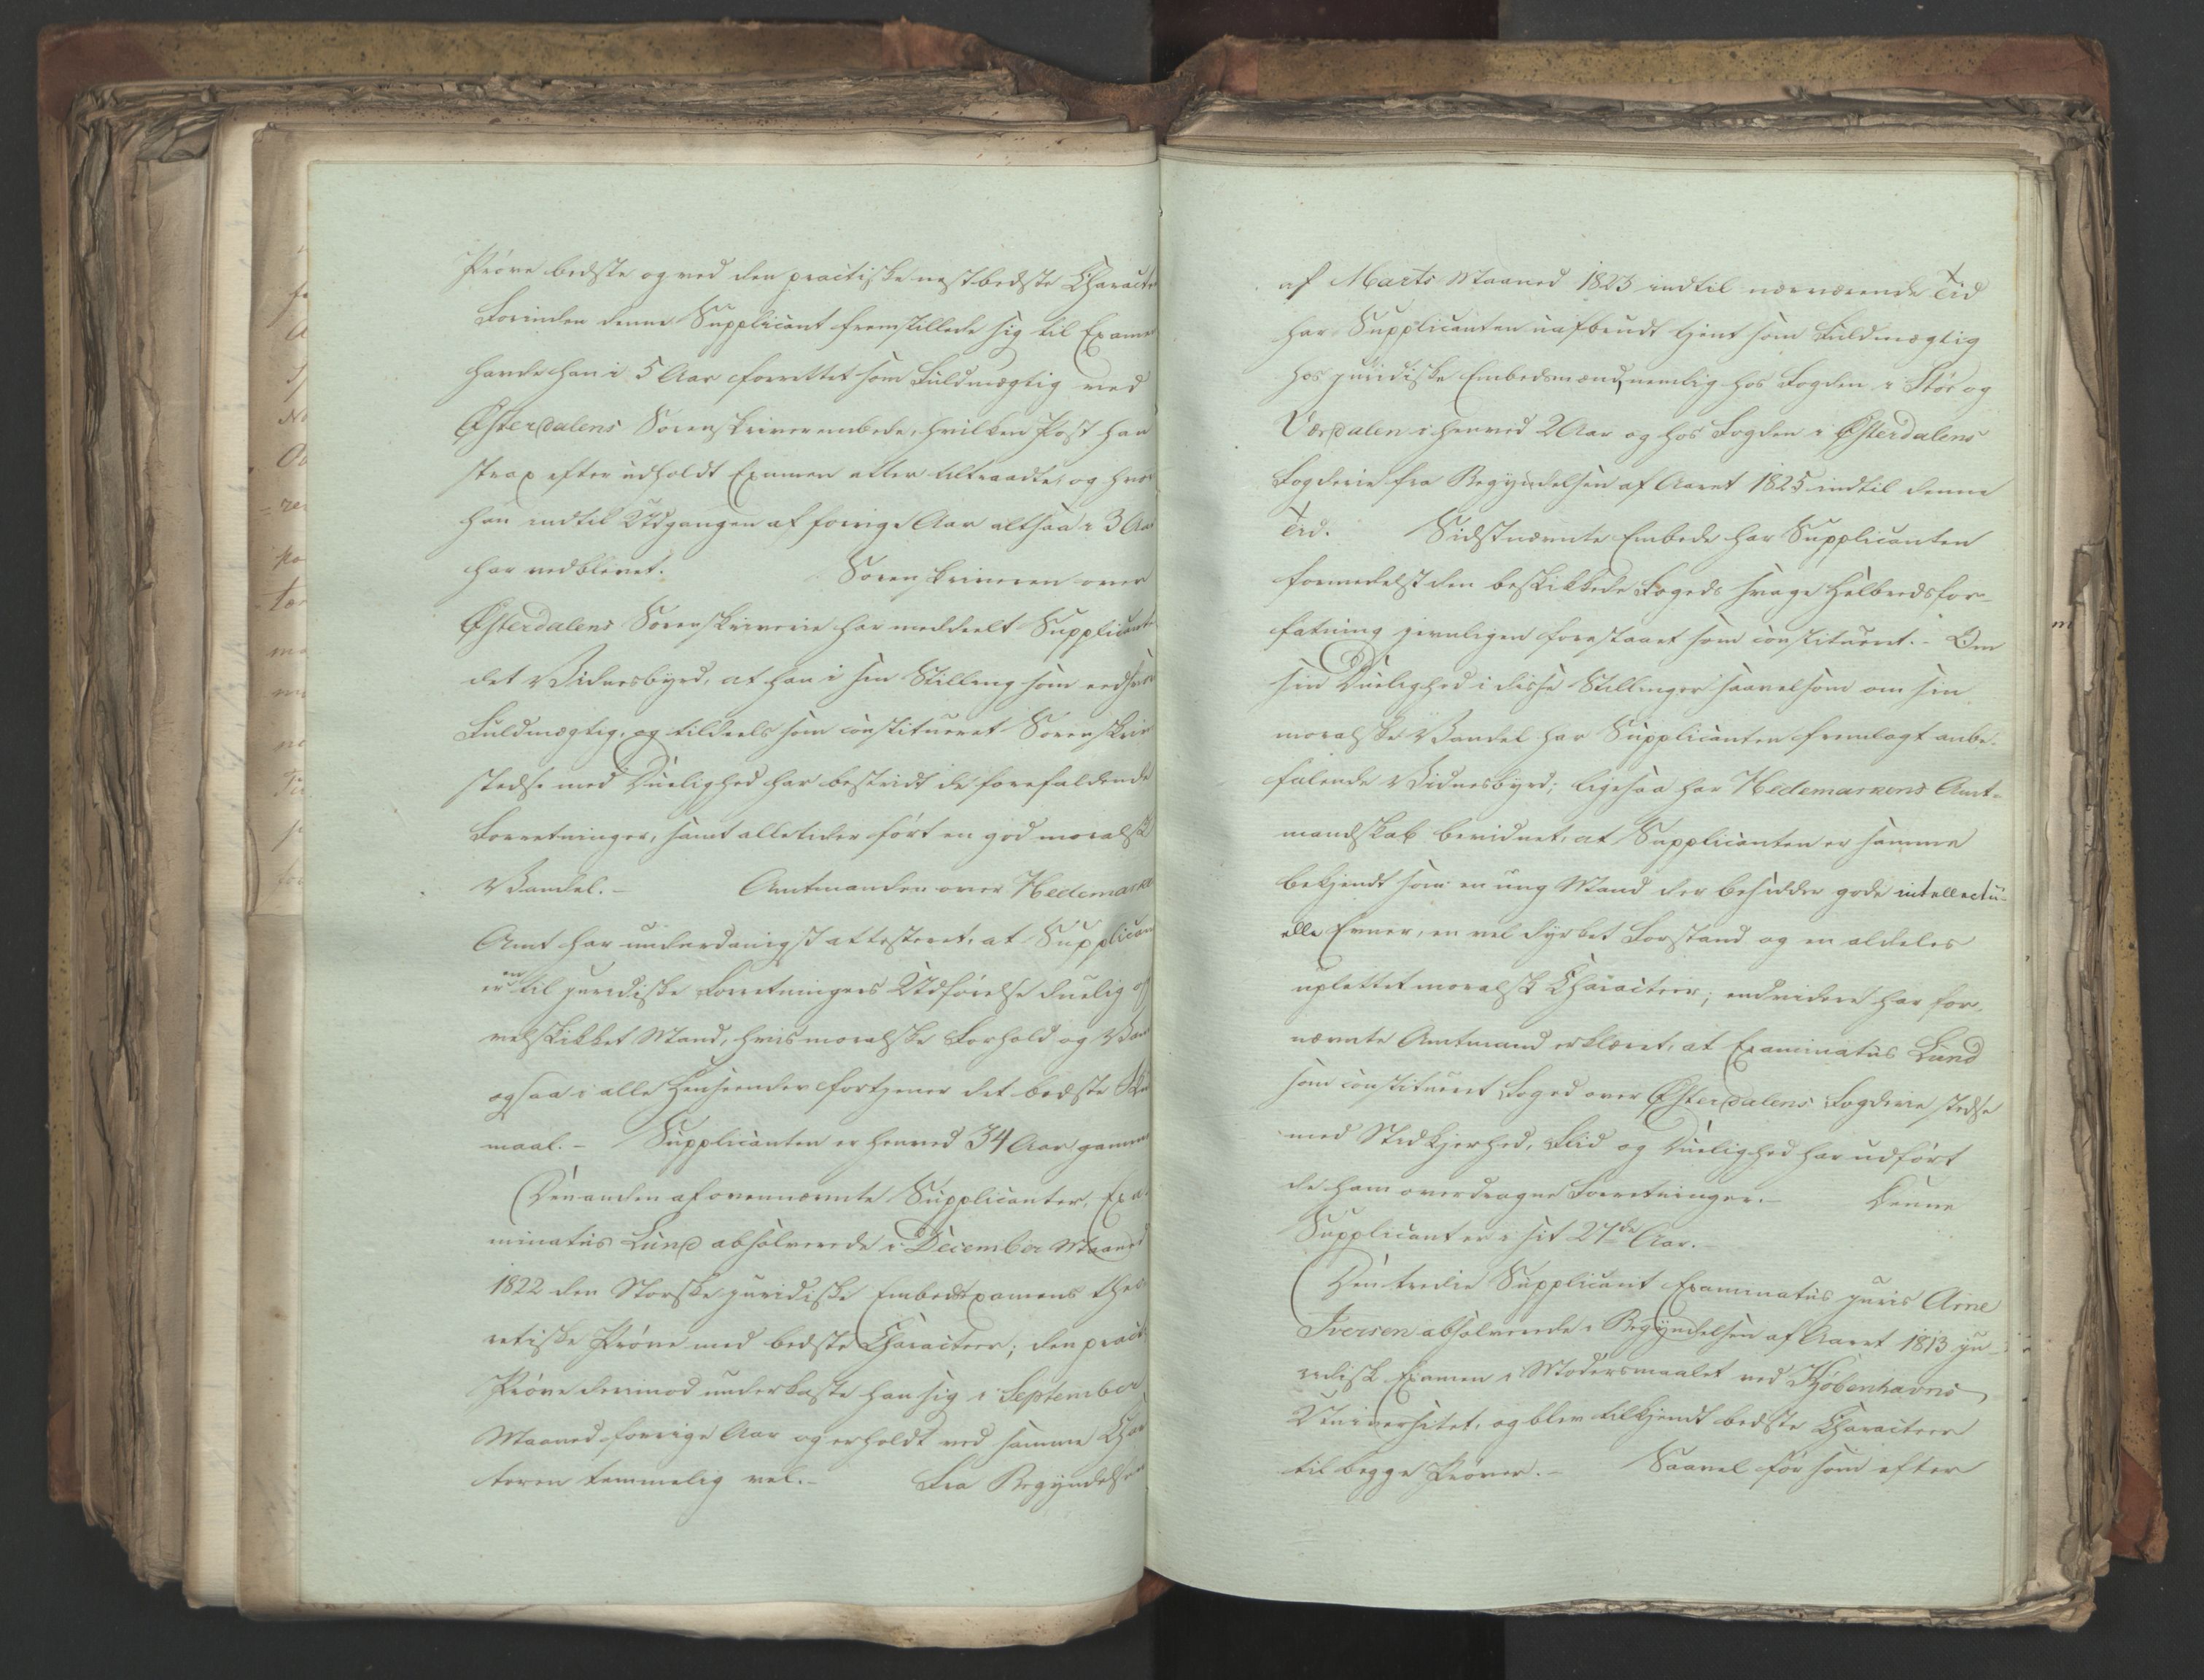 Prøve bedste og ved den practiske næstbedste Charact
Forinden denne Supplicant fremstillede sig til Exame
havde han i 5 Aar forrettet som Fuldmægtig ved
Østerdalens Sorenskriverembede, hvilken Post han
strax efter udholdt Examen atter tiltraadte, og hvor
han indtil Udgangen af forrige Aar altsaa i 3 Aar
har vedblevet. Sorenskriveren over
Østerdalens Sorenskriverie har meddeelt Supplicant
det Vidnesbyrd, at han i sin Stilling som eedsvor
Fuldmægtig, og tildeels som constitueret Sorenskriv
stedse med Duelighed har bestridt de forefaldende
Forretninger, samt alletider ført en god moralsk
Vandel. – Amtmanden over Hedemarke
Amt har underdanigst attesteret, at Supplican
er en til juridiske Forretningers Udførelse duelig og
velskikket Mand, hvis moralske Forhold og Van
ogsaa i alle Henseender fortjener det bedste Skuds
maal. – Supplicanten er henved 34 Aar gamm
Den anden af ovennævnte Supplicanter, Exa-
minatus Lund absolverede i December Maaned
1822 den Norske juridiske Embedsexamens theo
retiske Prøve med bedste Characteer; den pract:
Prøve derimod underkaste han sig i September
Maaned forrige Aar og erholdt ved samme Char
teren temmelig vel. – Fra Begyndelsen
af Marts Maaned 1823 indtil nærværende Tid
har Supplicanten uafbrudt tjent som Fuldmægtig
hos juridiske Embedsmænd, nemlig hos Fogden i Stør og
Værdalen i henved 2 Aar og hos Fogden i Østerdalens
Fogderie fra Begyndelsen af Aaret 1825 indtil denne
Tid. Sidstnævnte Embede har Supplicanten
formedelst den beskikkede Fogeds svage Helbredsfor-
fatning jevnligen forestaaet som constitueret. – Om
sin Duelighed i disse Stillinger saavelsom om sin
moralske Vandel har Supplicanten fremlagt anbe-
falende Vidnesbyrd; ligesaa har Hedemarkens Amt-
mandskab bevidnet, at Supplicanten er samme
bekjendt som en ung Mand der besidder gode intellectu-
elle Evner, en vel dyrket Forstand og en aldeles
uplettet moralsk Characteer; endvidere har for-
nævnte Amtmand erklæret, at Examinatus Lund
som constitueret Foged over Østerdalens Fogderie stedse
med Nidkjerhed, Flid og Duelighed har udført
de ham overdragne Forretninger. – Denne
Supplicant er i sit 27de Aar. –
Den tredie Supplicant Examinatus juris Arne
Iversen absolverede i Begyndelsen af Aaret 1813 ju-
ridisk Examen i Modersmaalet ved Kjøbenhavns
Universitet, og blev tilkjendt bedste Characteer
til begge Prøver. – Saavel før som efter